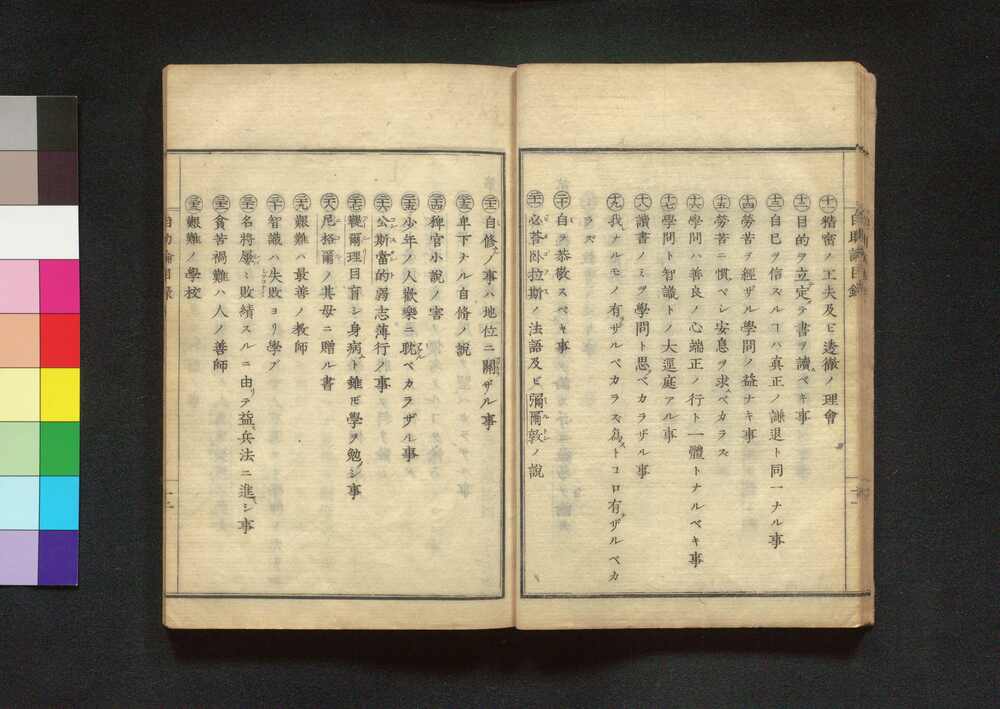 自助論目録
十一 精密ノ工夫及ビ透徹ノ理會
十二 目的ヲ立定テ書ヲ讀ベキ事
十三 自己ヲ信スルコハ真正ノ謙退ト同一ナル事
十四 勞苦ヲ經ザル學問ノ益ナキ事
十五 勞苦ニ慣ベシ安息ヲ求ベカラス
十六 學問ハ善良ノ心端正ノ行ト一體トナルベキ事
十七 學問ト智識トノ大逕庭アル事
十八 讀書ノミヲ學問ト思ベカラザル事
十九 我ナルモノ有ザルベカラズ為トコロ有ザルベカ
ラス
二十 自ヲ恭敬スベキ事
二十一 必荅臥拉斯ノ法語及ビ彌爾敦ノ說
二十二 自修ノ事ハ地位ニ關ザル事
二十三 卑下ナル自脩ノ說
二十四 稗官小說ノ害
二十五 少年ノ人歡樂ニ耽ベカラザル事
二十六 公斯當的弱志薄行ノ事
二十七 鞑爾理目盲シ身病ト雖𪜈學ヲ勉シ事
二十八 尼格爾ノ其母ニ贈ル書
二十九 艱難ハ最善ノ教師
三十 智識ハ失敗ヨリ學ブ
三十一 名将屢〻敗績スルニ由テ益兵法ニ進シ事
三十二 貪苦禍難ハ人ノ善師
三十三 艱難ノ學校
自助論目録
十二